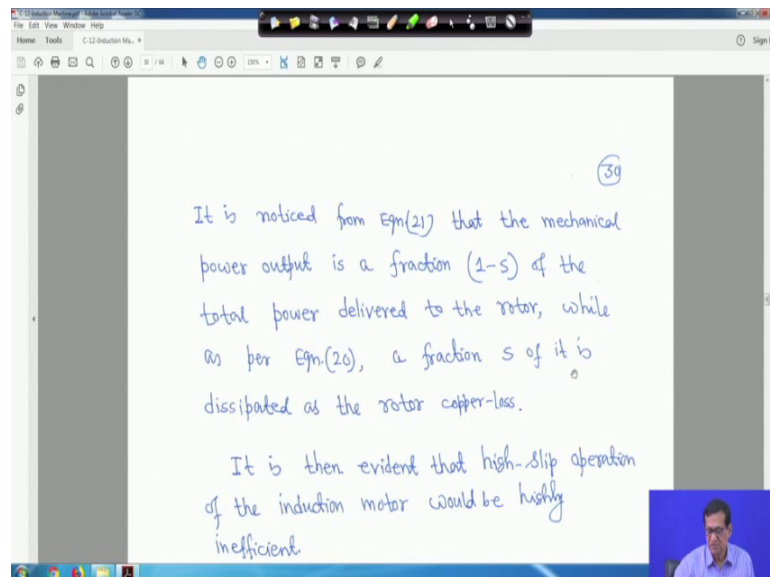 C-12-Induction Machine.pdf - Adobe Acrobat Reader DC
File Edit View Window Help
Home Tools C-12-Induction Ma... × Sign
150%
30
It is noticed from Eqn(21) that the mechanical
power output is a fraction (1-s) of the
total power delivered to the rotor, while
as per Eqn.(20), a fraction s of it is
dissipated as the rotor copper-loss.
It is then evident that high-slip operation
of the induction motor would be highly
inefficient.